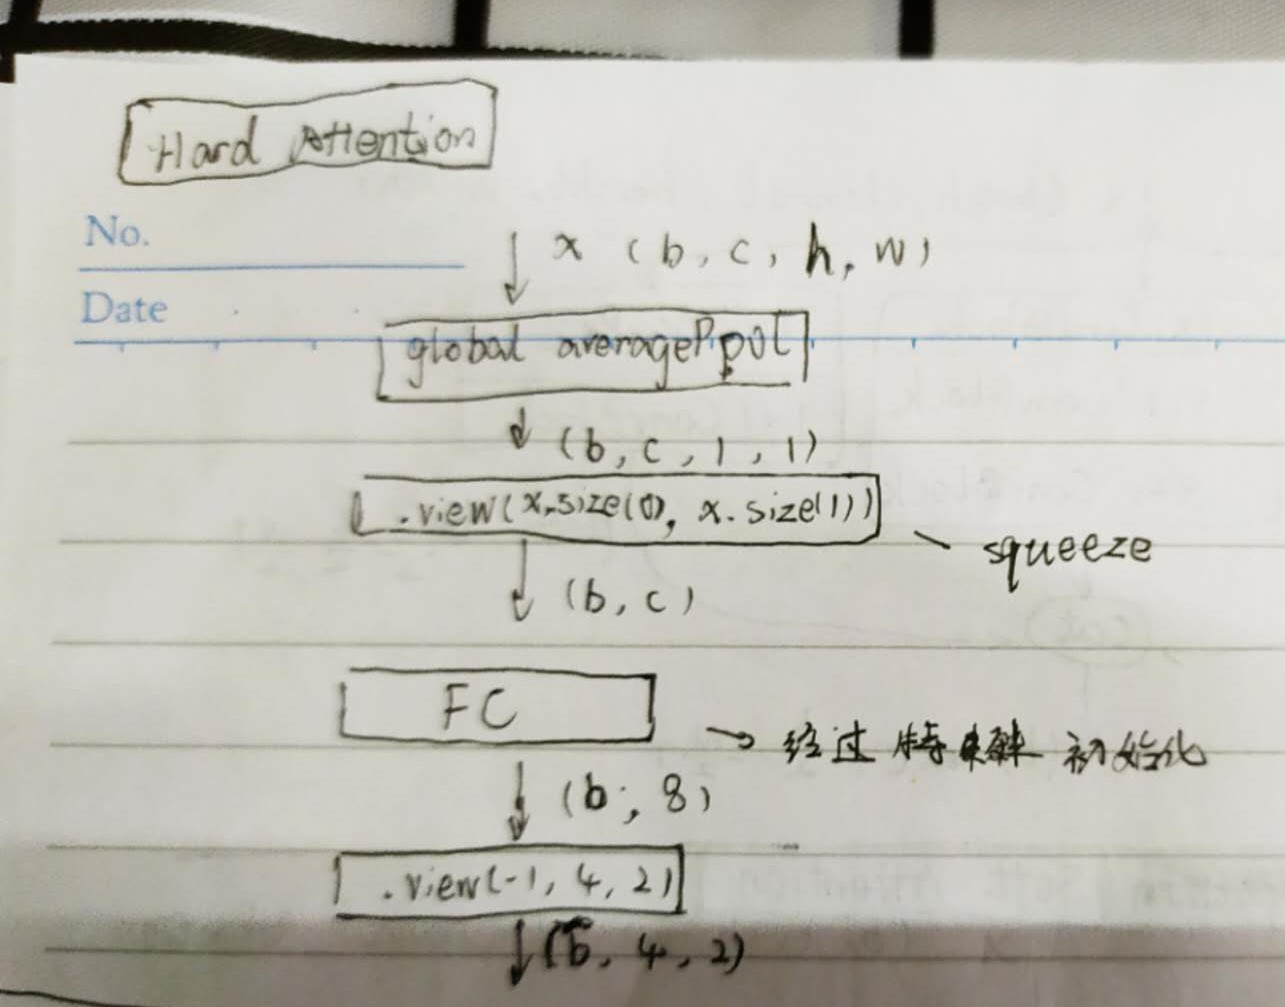 Hard Attention
No.
x (b, c, h, w)
Date
global averagePool
(b, c, 1, 1)
.view(x.size(0), x.size(1))
squeeze
(b, c)
FC
经过特殊初始化
(b, 8)
.view(-1, 4, 2)
(b, 4, 2)